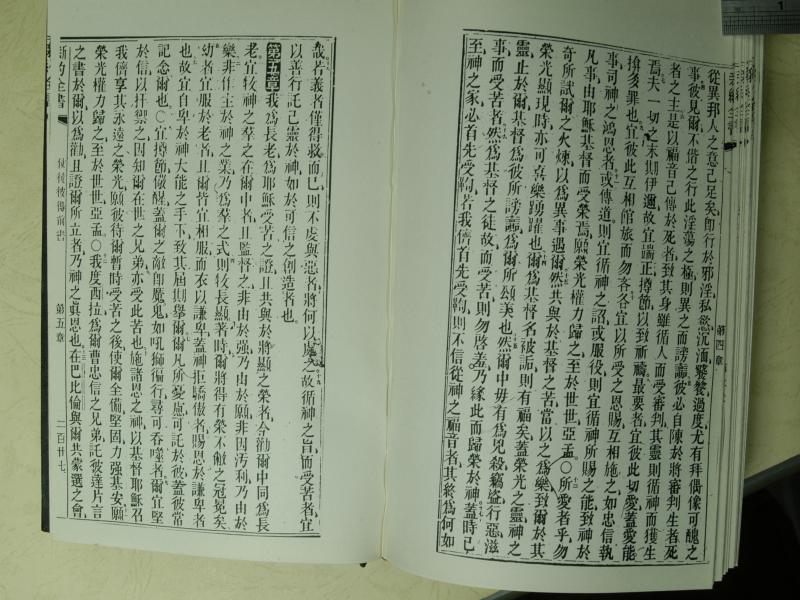 第四章
從異邦人之意已足矣卽行於邪淫私慾沉湎饕餮過度尤有拜偶像可醜之
事彼見爾不偕之行此淫蕩之極則異之而謗讟彼必自陳於將審判生者死
者之主是以福音已傳於死者致其身雖循人而受審判其靈則循神而獲生
焉夫一切之末期伊邇故宜端正撙節以致祈禱最要者宜彼此切愛蓋愛能
揜多罪也宜彼此互相館旅而勿吝各宜以所受之恩賜互相施之如忠信執
事可神之鴻恩者或傳道則宜循神之詔或服役則宜循神所賜之能致神於
凡事由耶穌基督而受榮焉願榮光權力歸之至於世世亞孟〇所愛者乎勿
奇所試爾之火煉以爲異事遇爾然共與於基督之苦當以之爲樂致爾於其
榮光顯現時亦可喜樂踴躍也爾爲基督名被詬則有福矣蓋榮光之靈神之
靈止於爾基督爲彼所謗讟爲爾所頌美也然爾中毋有爲兇殺竊盜行惡滋
事而受苦者然爲基督之徒故而受苦則勿啓羞乃緣此而歸榮於神蓋時已
至神之家必首先受鞫若我儕首先受鞫則不信從神之福音者其終爲何如
哉若義者僅得救而已則不虔與惡者將何以處之故循神之旨而受苦者宜
以善行託己靈於神如於可信之創造者也
第五章我爲長老爲耶穌受苦之證且共與於將顯之榮者今勸爾中同爲長
老宜牧神之羣之在爾中者且監督之非由於強乃由於願非因汚利乃由於
樂非作主於神之業乃爲羣之式則牧長顯著時爾將得有榮不敝之冠冕矣
幼者宜服於老者且爾皆宜相服而衣以謙卑蓋神拒驕傲者賜恩於謙卑者
也故宜自卑於神大能之手下致其屆期擧爾爾凡所憂慮可託於彼蓋彼常
記念爾也〇宜撙節儆醒蓋爾之敵卽魔鬼如吼獅徧行尋可吞噬者爾宜堅
於信以扞禦之因知爾在世之兄弟亦受此苦也施諸恩之神以基督耶穌召
我儕享其永遠之榮光願彼待爾暫時受苦之後使爾全備堅固力強基安願
榮光權力歸之至於世世亞孟〇我度西拉爲爾曹忠信之兄弟託彼達片言
之書於爾以爲勸且證爾所立者乃神之眞恩也在巴比倫與爾共蒙選之會
新約全書 使徒彼得前書 第五章 二百廿七